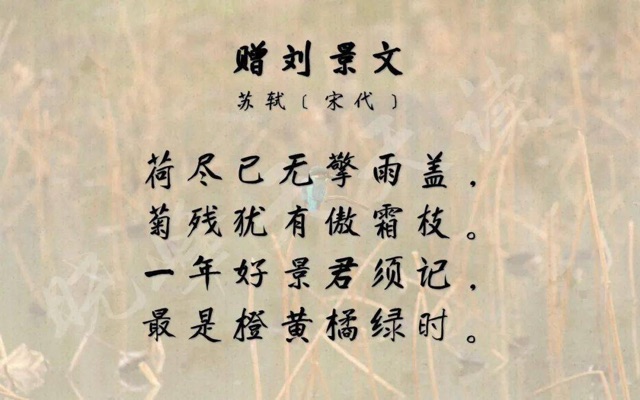 赠刘景文
苏轼〔宋代〕
荷尽已无擎雨盖，
菊残犹有傲霜枝。
一年好景君须记，
最是橙黄橘绿时。